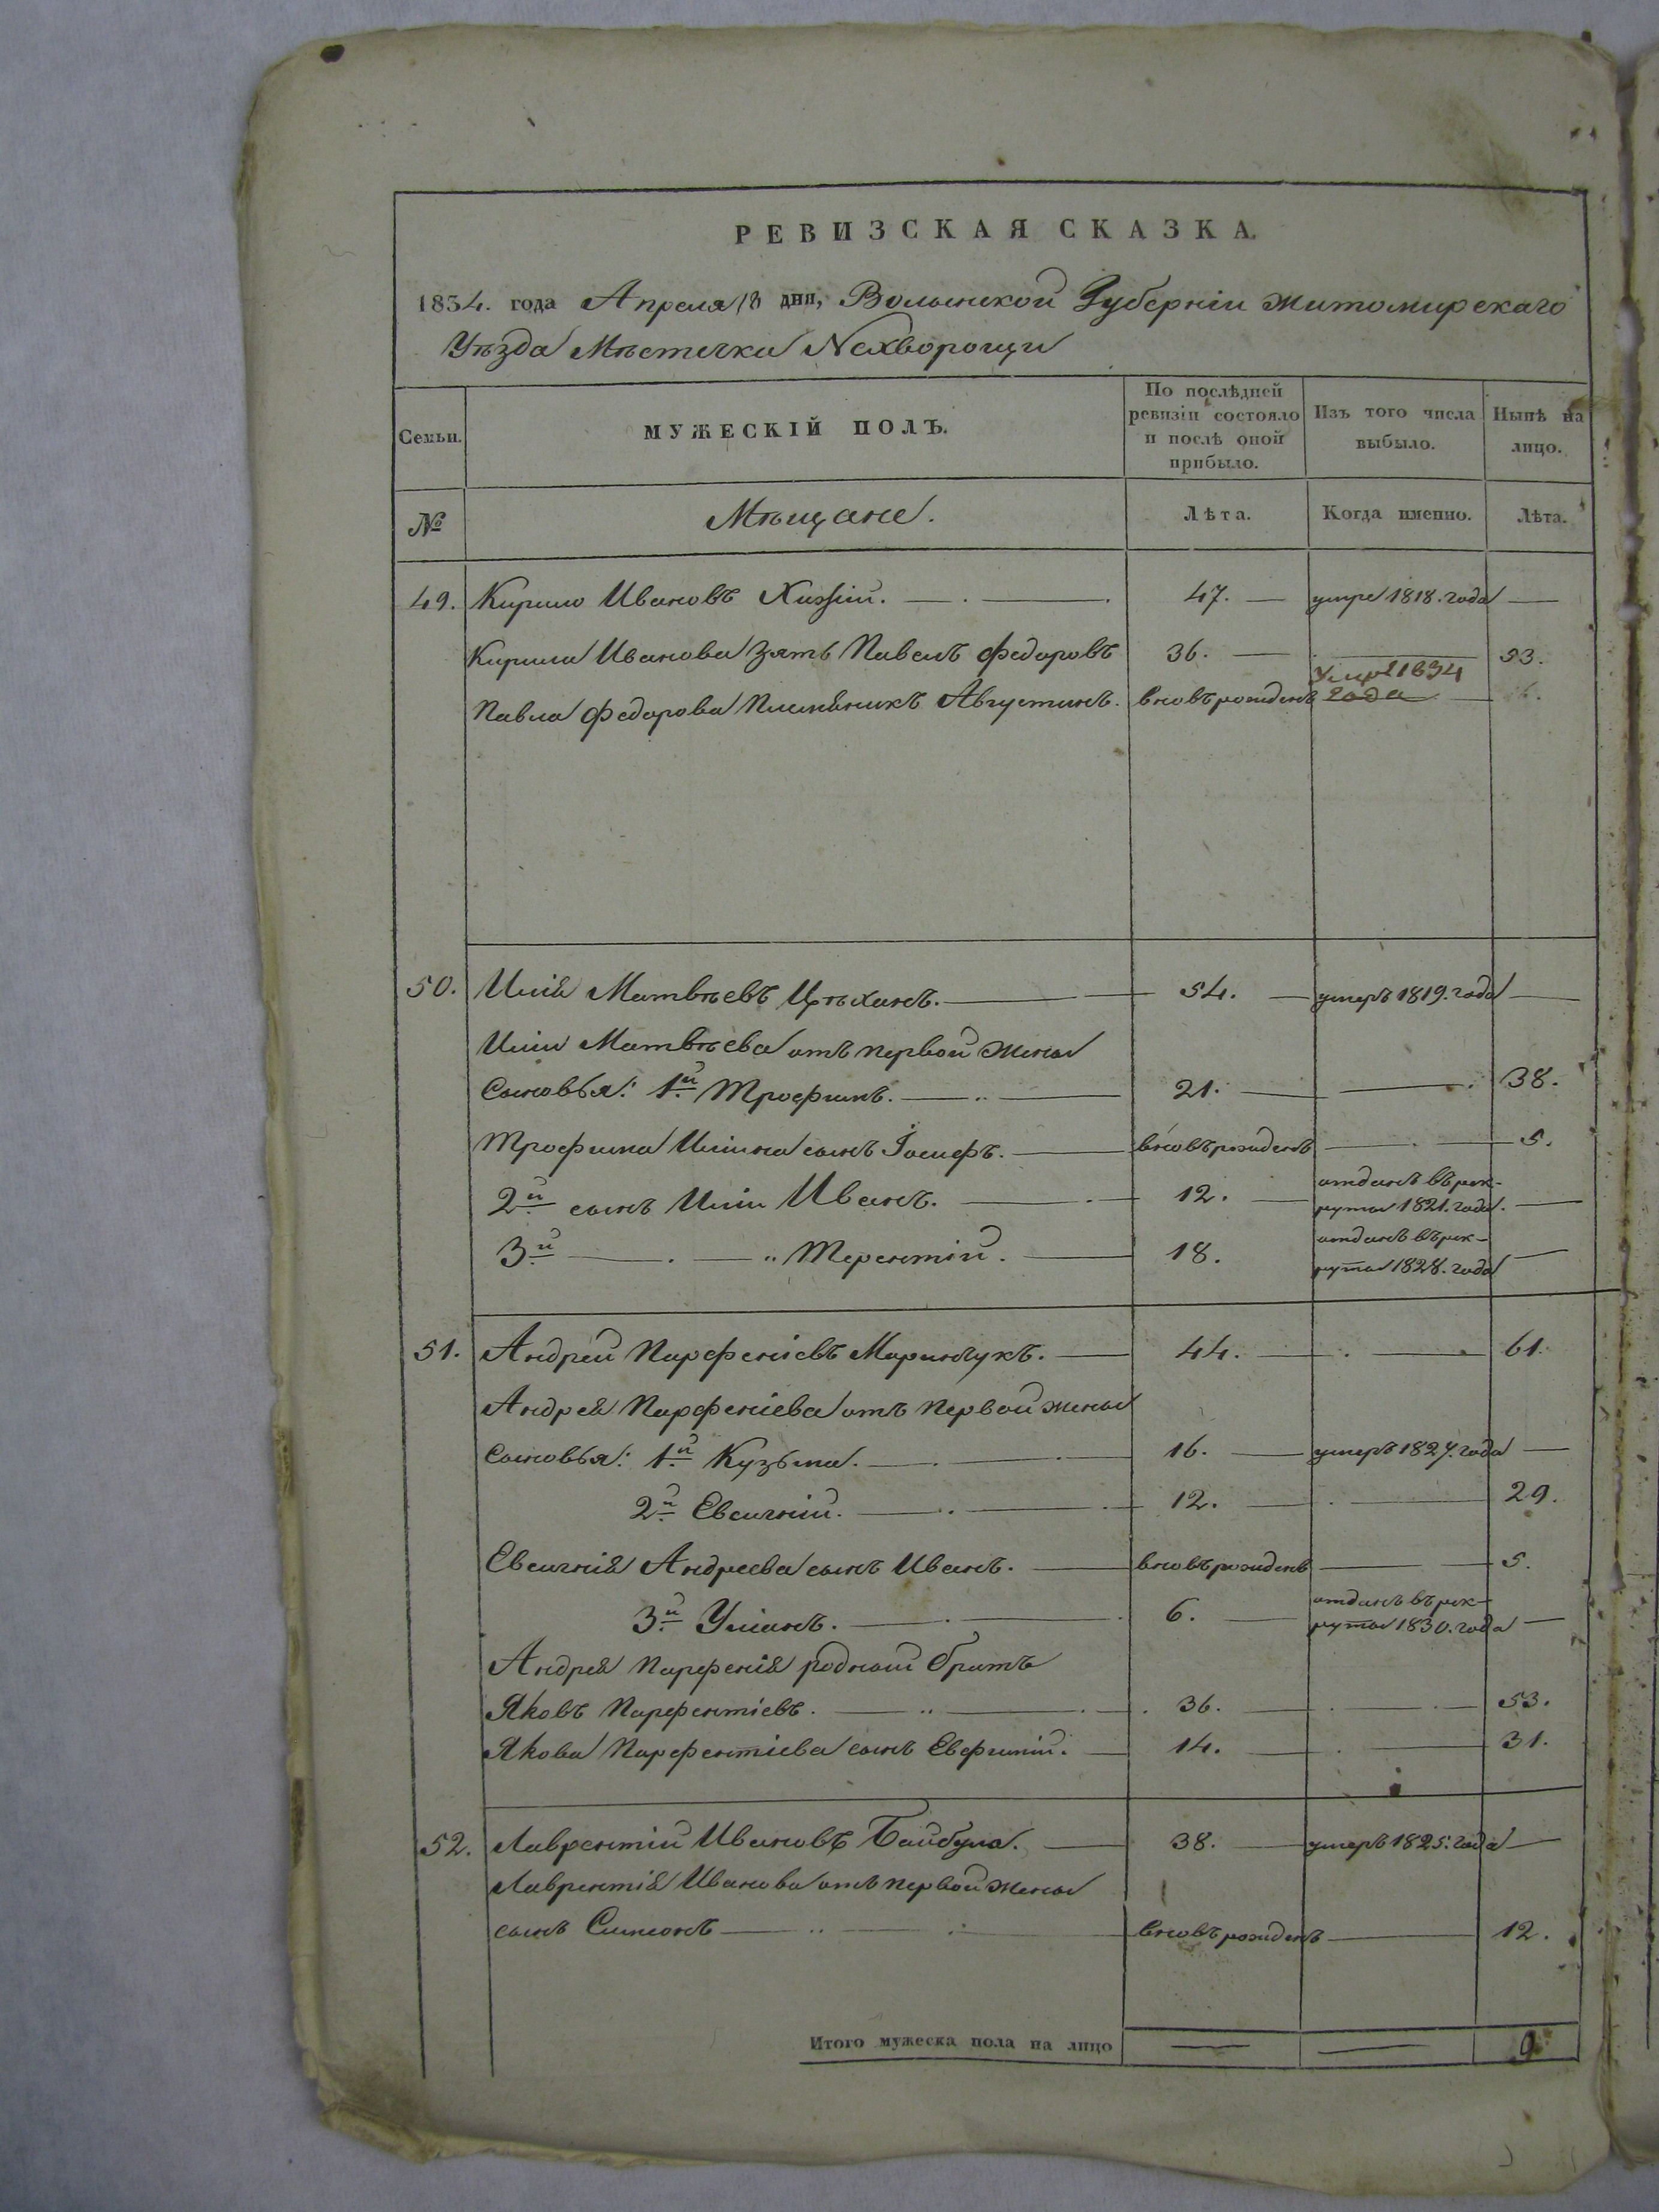 РЕВИЗСКАЯ СКАЗКА.
1834. года Апреля 18 дня, Волынской Губерніи Житомирскаго
Уѣзда Мѣстечка Нехворощи
Семьи.
МУЖЕСКІЙ ПОЛЪ.
По послѣдней ревизіи состояло и послѣ оной прибыло.
Изъ того числа выбыло.
Нынѣ на лицо.
№
Мѣщане.
Лѣта.
Когда именно.
Лѣта.
49. Кирило Ивановъ 47. умре 1818. года
Кирила Иванова зять Павелъ Федоровъ 36. 53.
Павла Федорова Племѣникъ Августинъ. вновърожденъ Умре 1834 года
50. Илія Матвѣевъ Цѣханъ. 54. умеръ 1819. года
Иліи Матвѣева отъ первой жены
Сыновья: 1й Трофимъ. 21. 38.
Трофима Иліина сынъ Іосифъ. вновърожденъ 5.
2й сынъ Иліи Иванъ. 12. отданъ въ рекруты 1821. года.
3й " Терентій. 18. отданъ въ рекруты 1828. года
51. Андрей Парфеніевъ Маринчукъ. 44. 61.
Андрея Парфеніева отъ первой жены
Сыновья: 1й Кузьма. 16. умеръ 1827. года
2й Евсигній. 12. 29.
Евсигнія Андреева сынъ Иванъ. вновърожденъ 5.
3й Уліанъ. 6. отданъ въ рекруты 1830. года
Андрея Парфенія родный братъ
Яковъ Парфентіевъ. 36. 53.
Якова Парфентіева сынъ Евфимій. 14. 31.
52. Лаврентій Ивановъ Байбула. 38. умеръ 1825. года
Лаврентія Иванова отъ первой жены
сынъ Симонъ вновърожденъ 12.
Итого мужеска пола на лицо 9